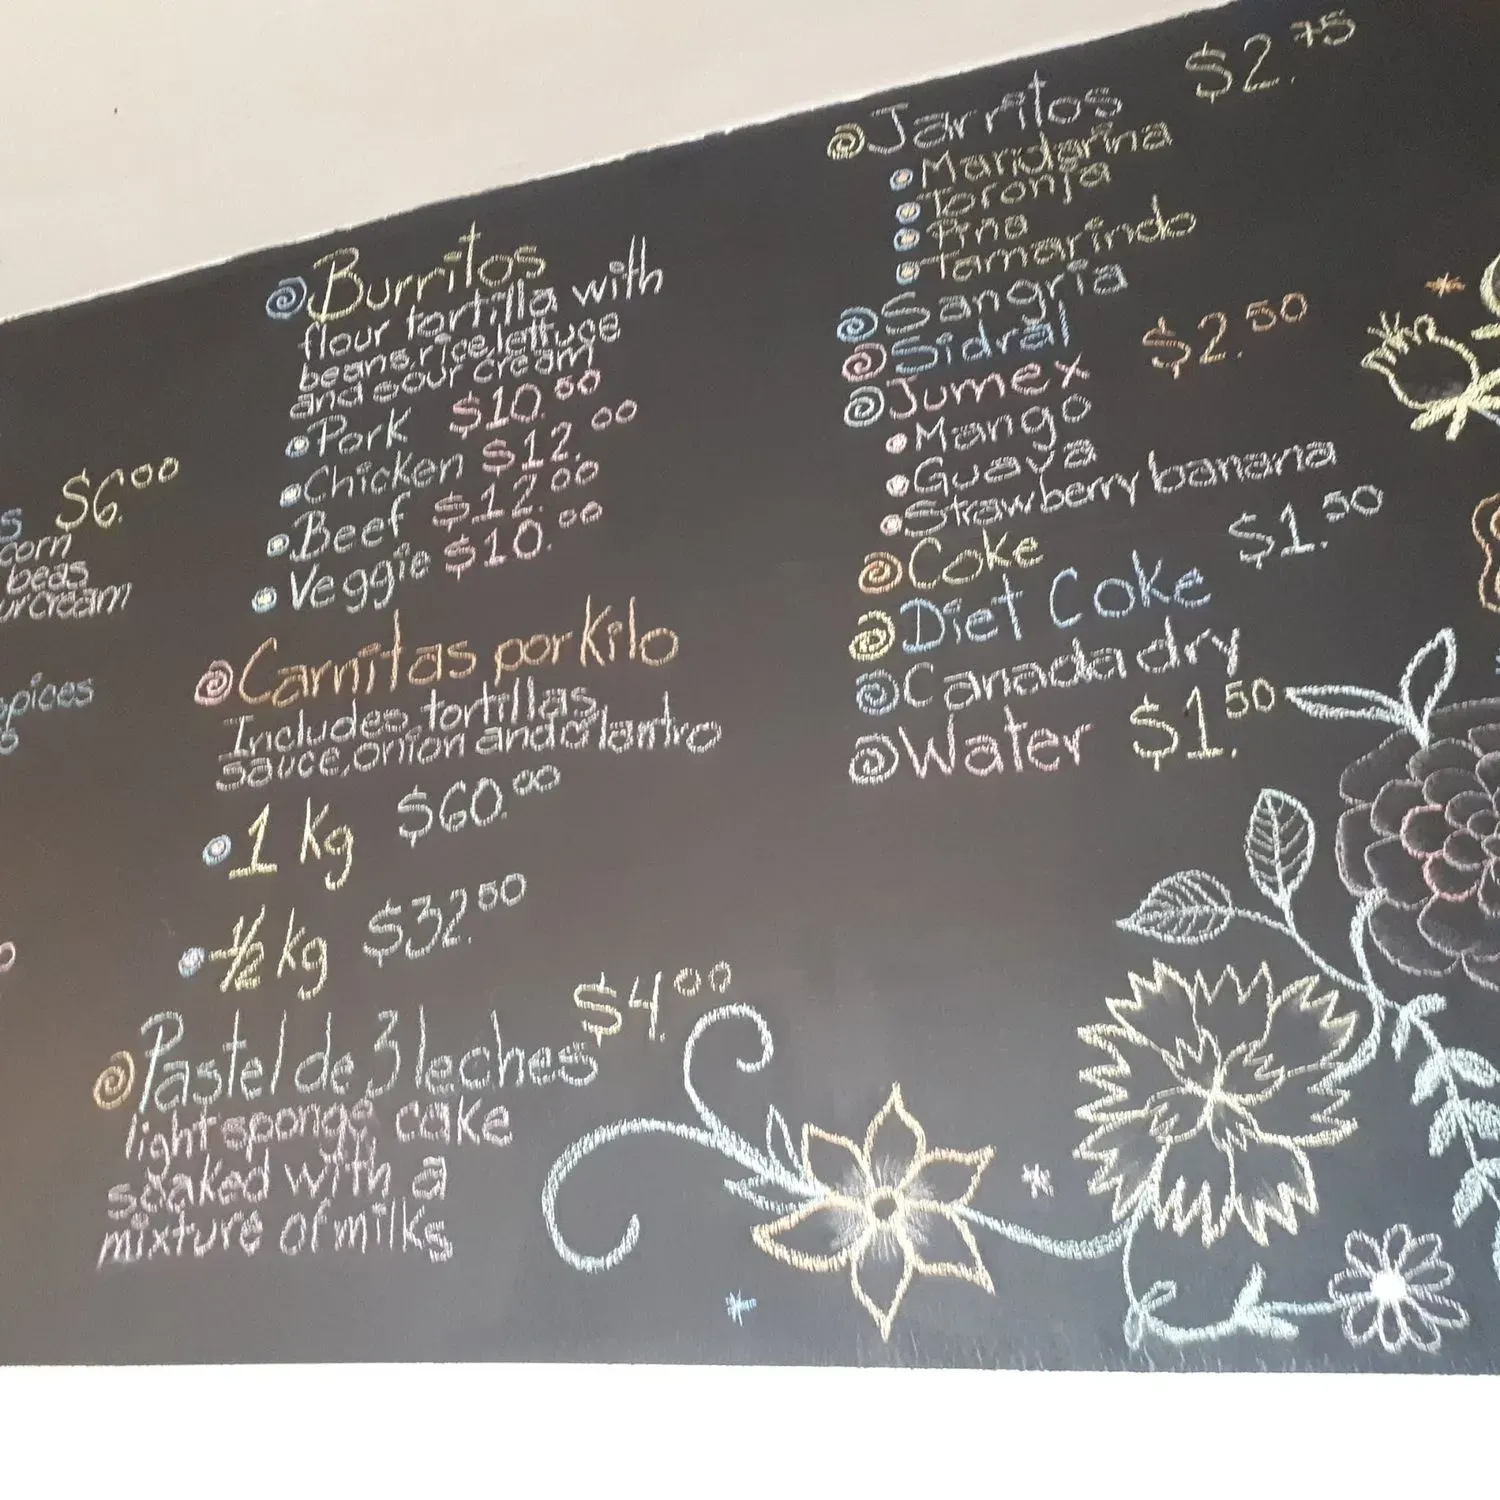 s $6.00
corn
beas
urcream
epices
Burritos
flour tortilla with
beans, rice, lettuce
and sour cream
Pork $10.00
Chicken $12.00
Beef $12.00
Veggie $10.00
Carnitas por Kilo
Includes tortillas,
sauce, onion and cilantro
1 Kg $60.00
1/2 kg $32.00
Pastel de 3 leches $4.00
light sponge cake
soaked with a
mixture of milks
Jarritos $2.75
Mandarina
Toronja
Piña
Tamarindo
Sangria
Sidral
Jumex $2.50
Mango
Guava
Strawberry banana
Coke $1.50
Diet Coke
Canada dry
Water $1.50